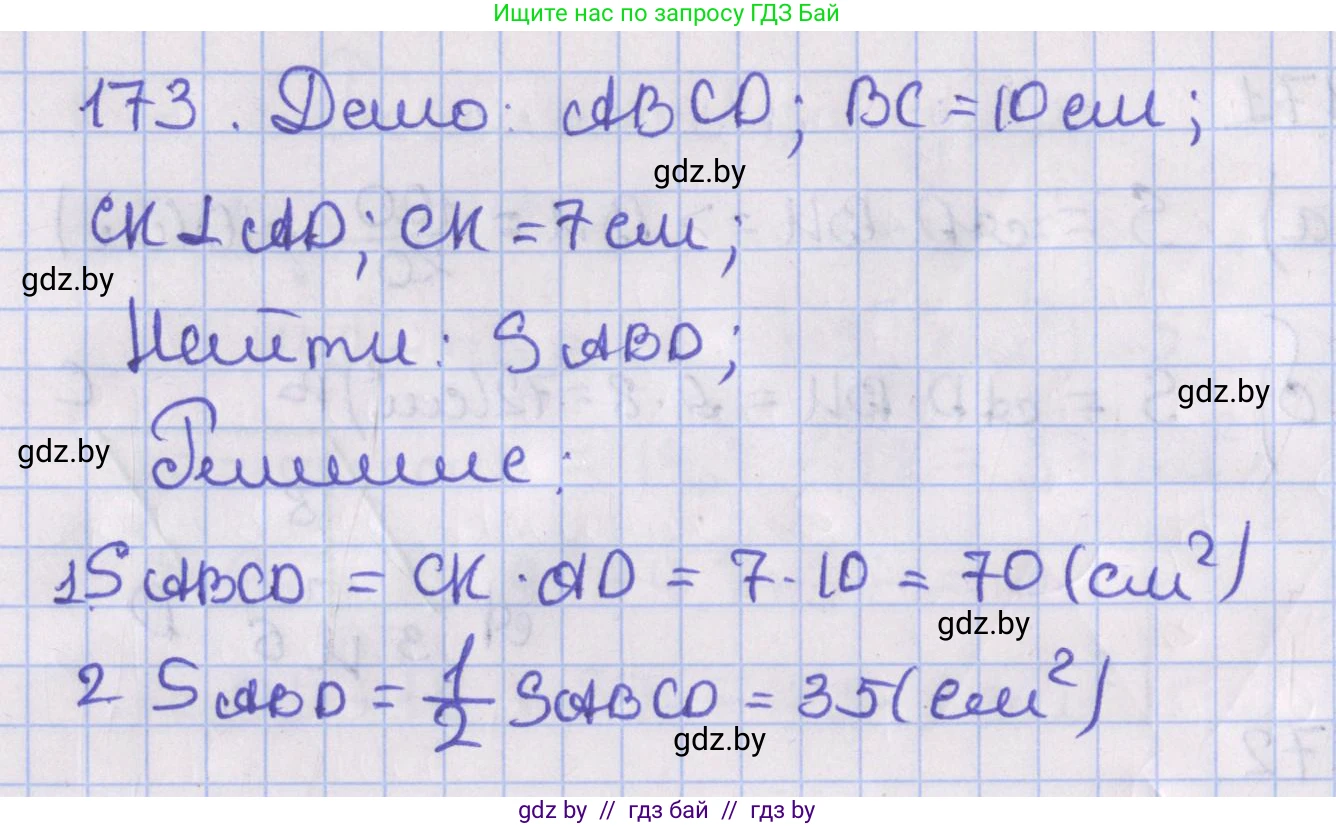 Ищите нас по запросу ГДЗ Бай
173. Дано: ABCD; BC = 10 см;
gdz.by
CK ⊥ AD; CK = 7 см;
gdz.by
Найти: S ABD;
gdz.by
gdz.by
Решение:
1 S ABCD = CK · AD = 7 · 10 = 70 (см²)
gdz.by
2 S ABD = 1/2 S ABCD = 35 (см²)
gdz.by
gdz by // гдз бай // гдз by